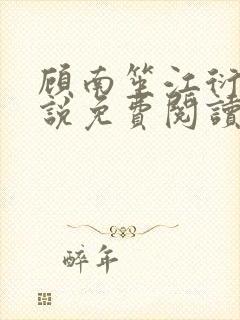 顾南笙江衍
說免費閱讀
醉年